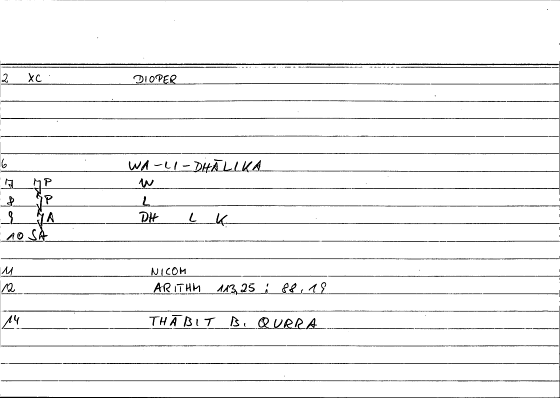 2 XC DIOPER
6 WA-LI-DHĀLIKA
7 JP W
8 JP L
9 JA DH L K
10 SA
11 NICOM
12 ARITHM 113,25 ; 88,19
14 THĀBIT B. QURRA